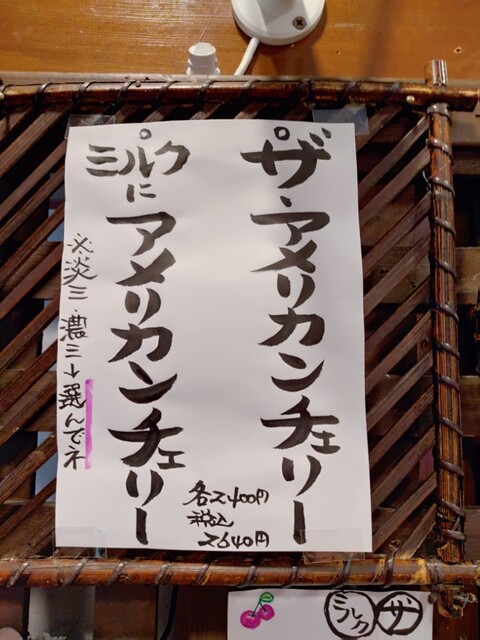 ザ・アメリカンチェリー
ミルクに
アメリカンチェリー
※淡ミ・濃ミ→選んでネ
各2400円
税込
2640円
ミルク
ザ